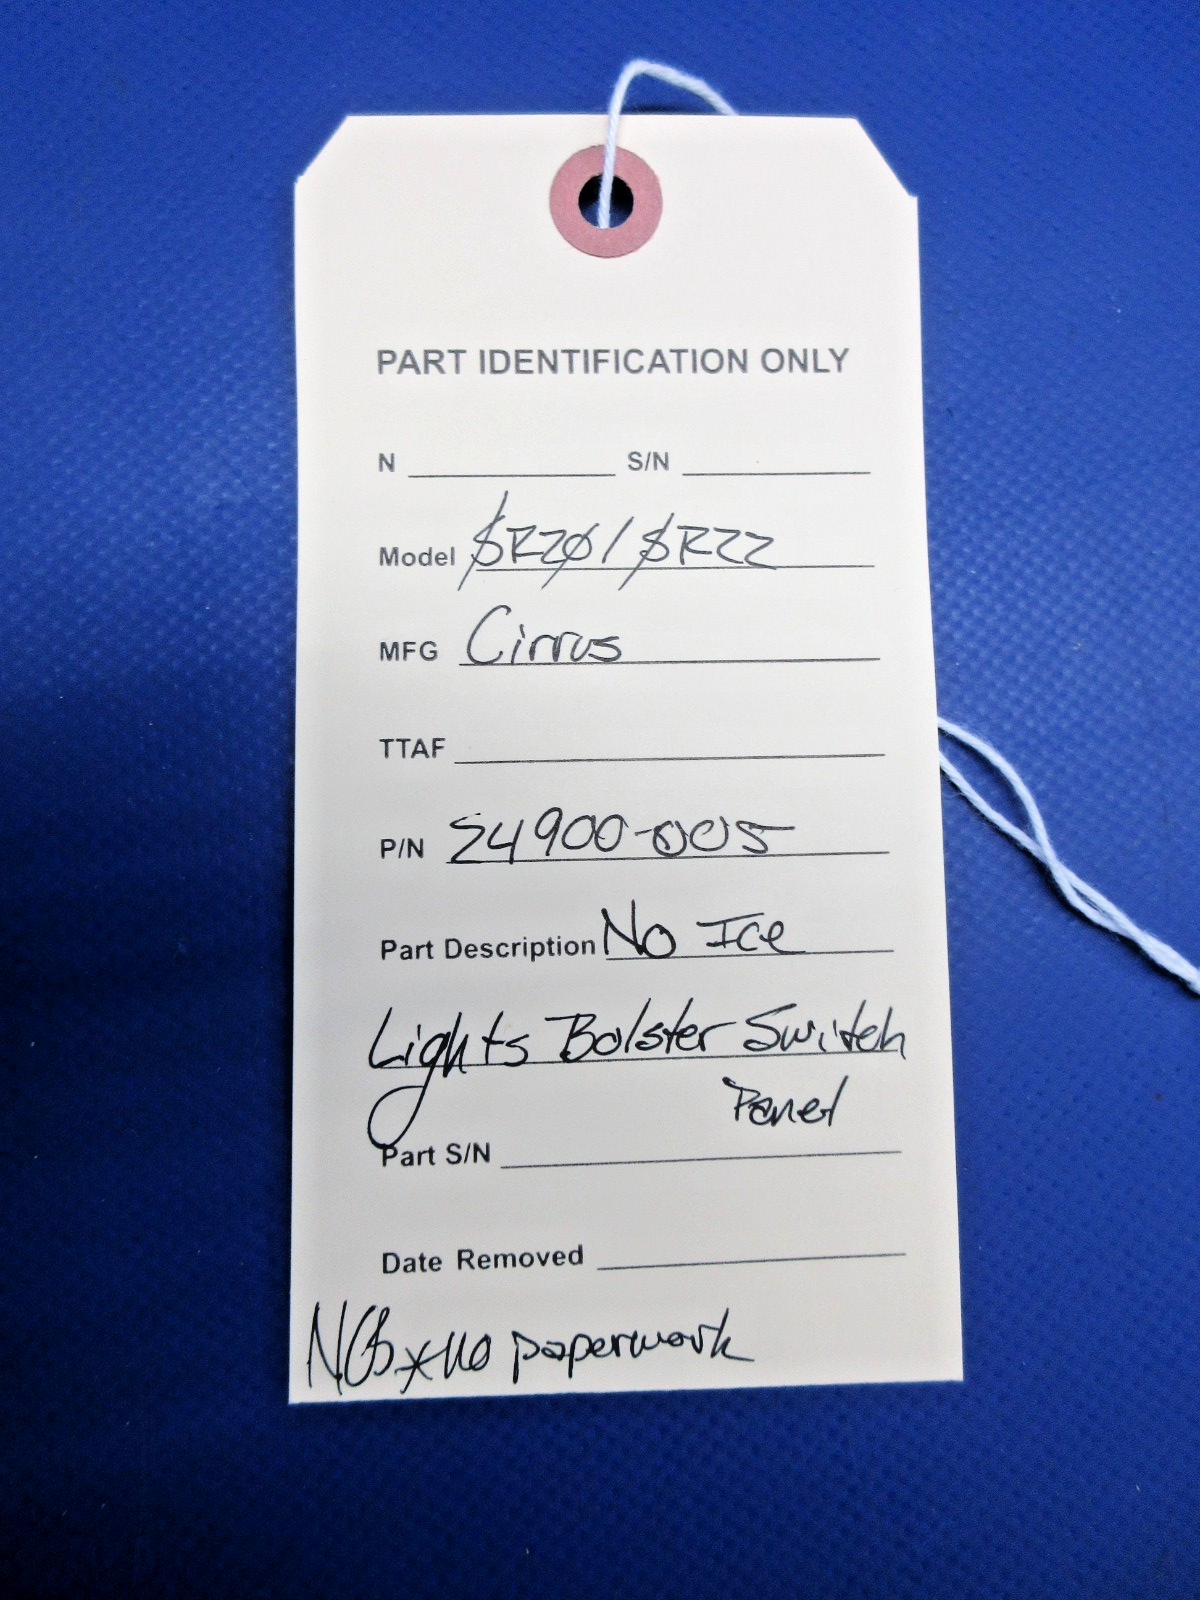 PART IDENTIFICATION ONLY
N S/N
Model SR20/SR22
MFG Cirrus
TTAF
P/N 24900-005
Part Description No Ice
Lights Bolster Switch
Panel
Part S/N
Date Removed
NOS * no paperwork